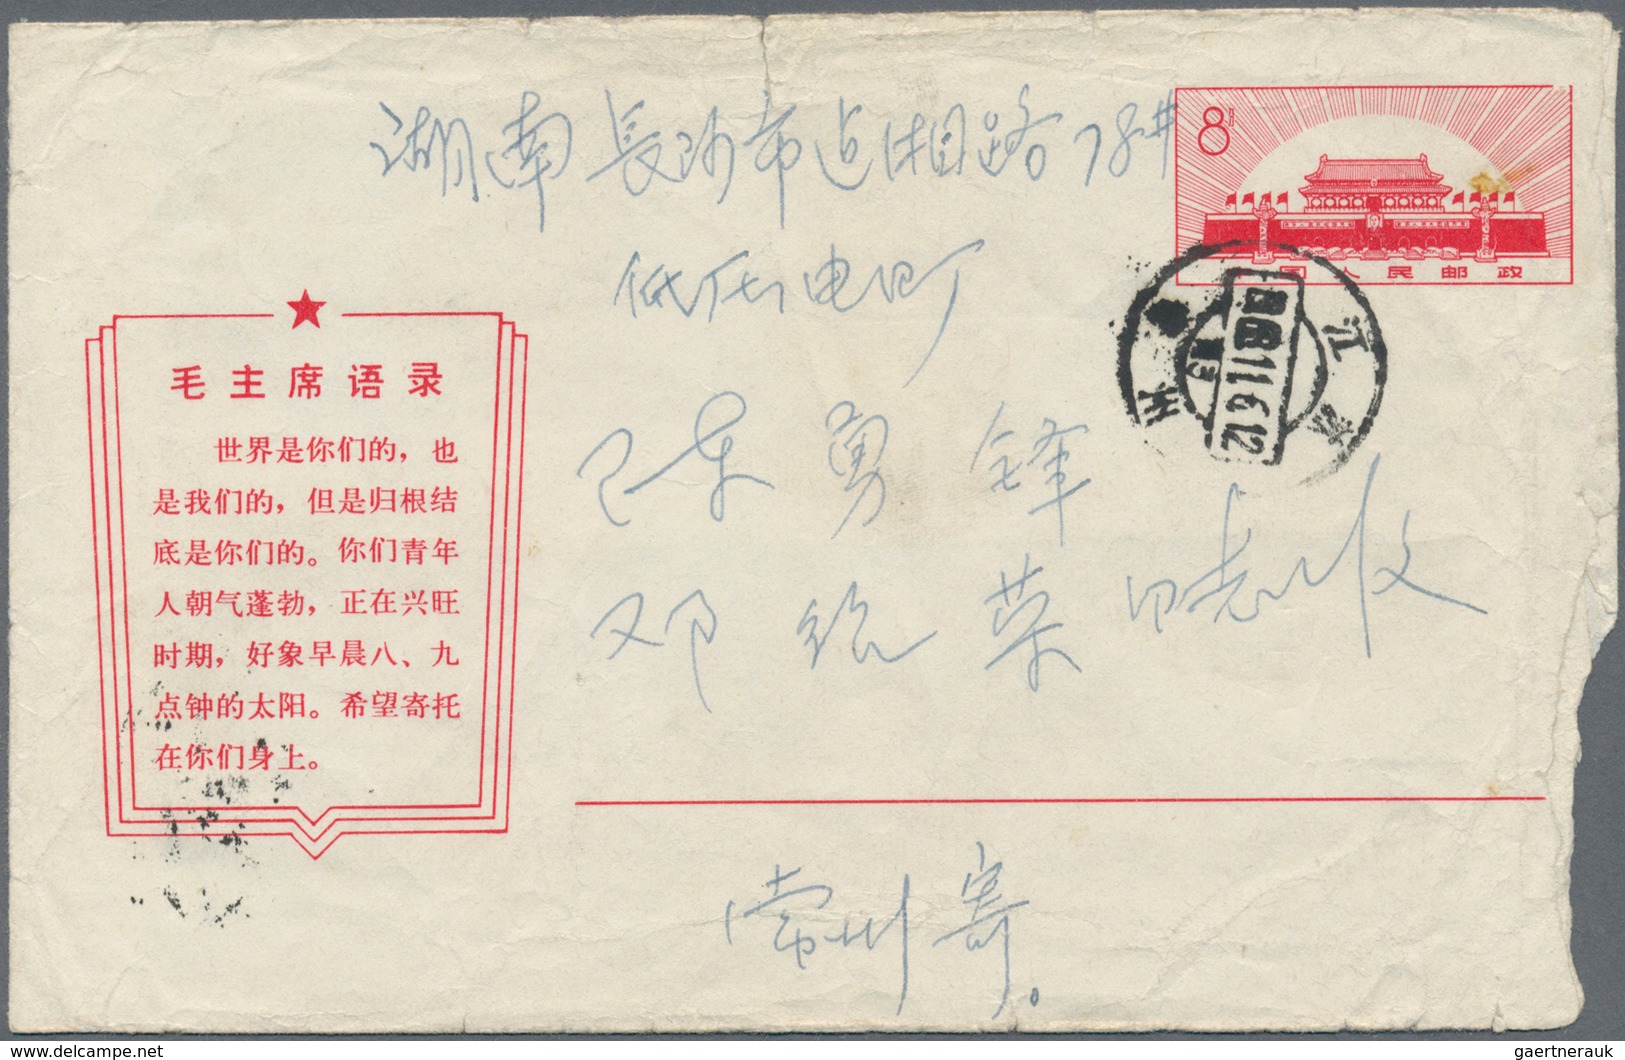 湖南長沙市沿湘路78#
8分
中国人民邮政
江苏
常州
1968.11.6.12
毛主席语录
世界是你们的，也
是我们的，但是归根结
底是你们的。你们青年
人朝气蓬勃，正在兴旺
时期，好象早晨八、九
点钟的太阳。希望寄托
在你们身上。
陈勇锋
邓 荣 收
常州寄。
gaertnerauk